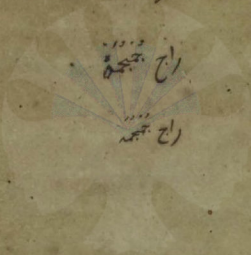 راج جمجمه
راج جمجمه